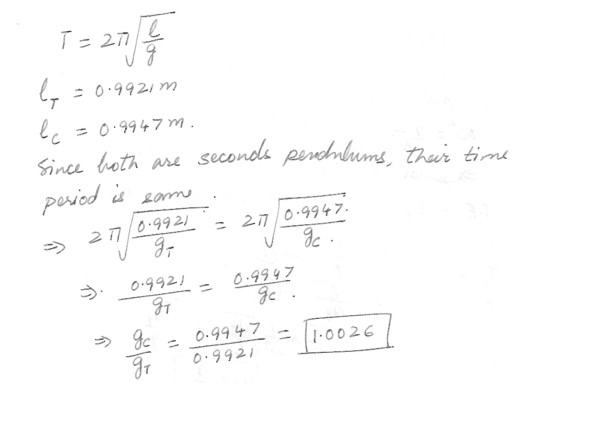 T = 2π√(l/g)
l_T = 0.9921 m
l_C = 0.9947 m.
Since both are seconds pendulums, their time
period is same.
⇒ 2π√(0.9921/g_T) = 2π√(0.9947/g_C).
⇒. 0.9921/g_T = 0.9947/g_C.
⇒ g_C/g_T = 0.9947/0.9921 = 1.0026